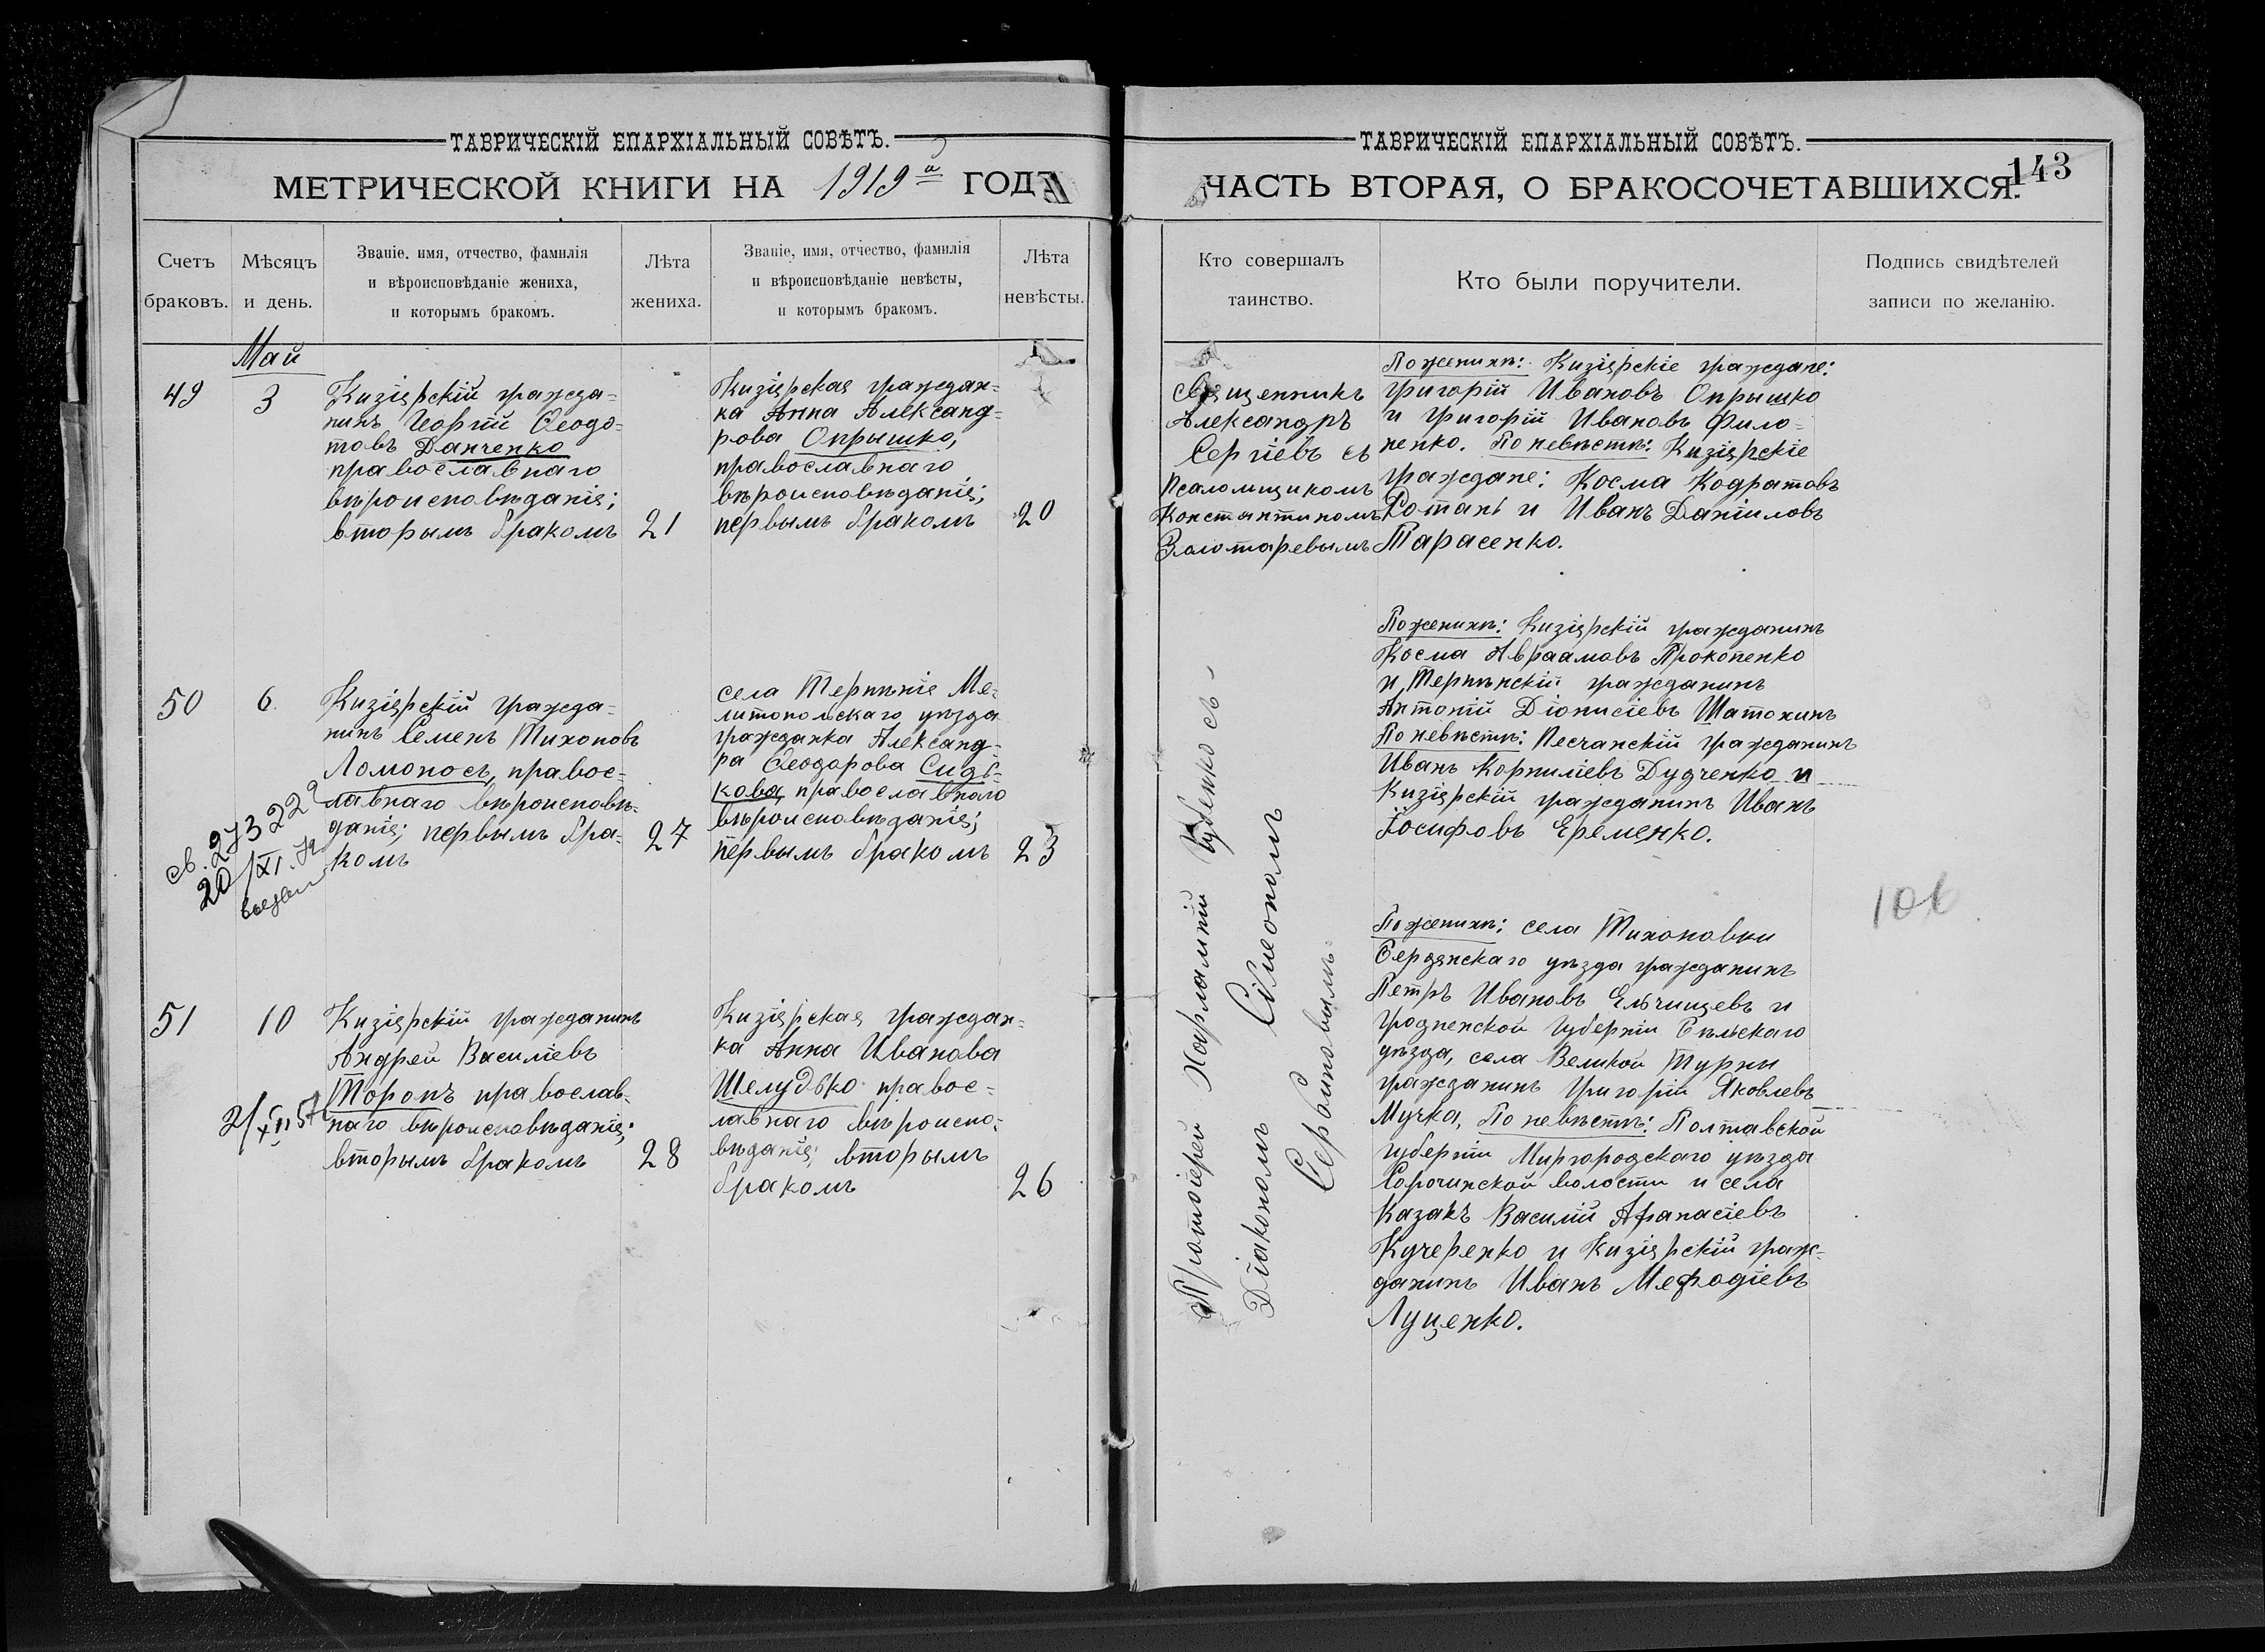 ТАВРИЧЕСКІЙ ЕПАРХІАЛЬНЫЙ СОВѢТЪ.
МЕТРИЧЕСКОЙ КНИГИ НА 1919й ГОДЪ
Счетъ браковъ.
Мѣсяцъ и день.
Званіе, имя, отчество, фамилія
и вѣроисповѣданіе жениха,
и которымъ бракомъ.
Лѣта жениха.
Званіе, имя, отчество, фамилія
и вѣроисповѣданіе невѣсты,
и которымъ бракомъ.
Лѣта невѣсты.
Май
49
3
Кизіярскій гражда-
нинъ Георгій Ѳеодо-
товъ Данченко
православнаго
вѣроисповѣданія;
вторымъ бракомъ
21
Кизіярская граждан-
ка Анна Александ-
рова Опрышко,
православнаго
вѣроисповѣданія;
первымъ бракомъ
20
50
6
Кизіярскій гражда-
нинъ Семенъ Тихоновъ
Ломоносъ, правос-
лавнаго вѣроисповѣ-
данія; первымъ бра-
комъ
27
села Терпѣнія Ме-
литопольскаго уѣзда
гражданка Александ-
ра Ѳеодорова Сидь-
кова, православнаго
вѣроисповѣданія;
первымъ бракомъ
23
св. 273222
20/XI.
51
10
Кизіярскій гражданинъ
Андрей Василіевъ
Торопъ православ-
наго вѣроисповѣданія;
вторымъ бракомъ
28
Кизіярская граждан-
ка Анна Иванова
Шелудько правос-
лавнаго вѣроиспо-
вѣданія; вторымъ
бракомъ
26
ТАВРИЧЕСКІЙ ЕПАРХІАЛЬНЫЙ СОВѢТЪ.
143
ЧАСТЬ ВТОРАЯ, О БРАКОСОЧЕТАВШИХСЯ.
Кто совершалъ
таинство.
Кто были поручители.
Подпись свидѣтелей
записи по желанію.
Священникъ
Александръ
Сергіевъ съ
Псаломщикомъ
Константиномъ
Золотаревымъ
По женихѣ: Кизіярскіе граждане:
Григорій Ивановъ Опрышко
и Григорій Ивановъ Фило-
ненко. По невѣстѣ: Кизіярскіе
граждане: Косма Кодратовъ
Ротань и Иванъ Даніиловъ
Тарасенко.
По женихѣ: Кизіярскій гражданинъ
Косма Авраамовъ Прокопенко
и Терпѣнскій гражданинъ
Антоній Діонисіевъ Шатохинъ
По невѣстѣ: Песчанскій гражданинъ
Иванъ Корниліевъ Дудченко и
Кизіярскій гражданинъ Иванъ
Іосифовъ Еременко.
Протоіерей Харлампій съ
Діакономъ Сімеономъ
Сербиновымъ
По женихѣ: села Тихоновки
Бердянскаго уѣзда гражданинъ
Петръ Ивановъ Ельчищевъ и
Гродненской губерніи Бѣльскаго
уѣзда, села Великой Турны
гражданинъ Григорій Яковлевъ
Мучка, По невѣстѣ: Полтавской
губерніи Миргородскаго уѣзда
Сорочинской волости и села
казакъ Василій Афанасіевъ
Кучеренко и Кизіярскій граж-
данинъ Иванъ Мефодіевъ
Луценко.